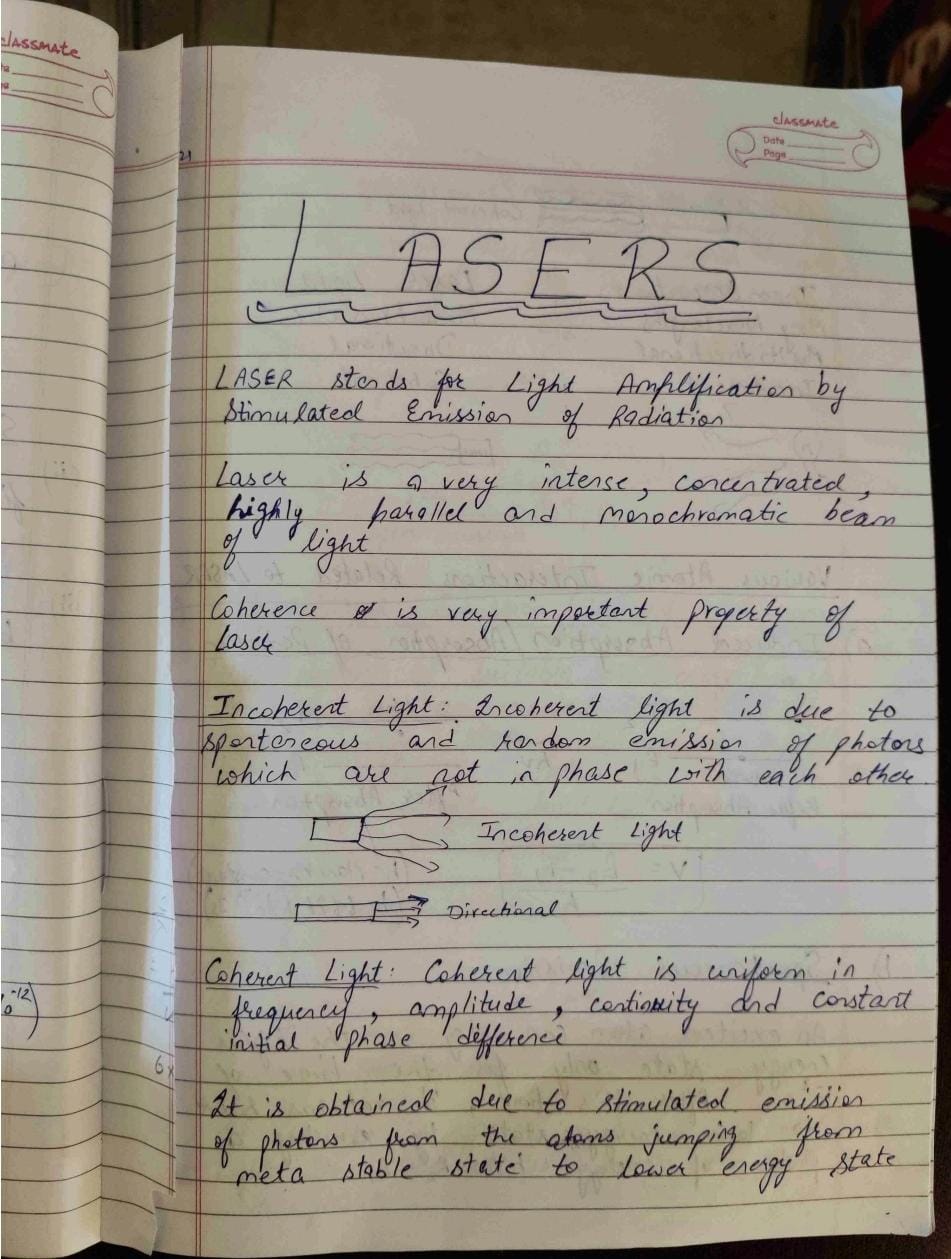 classmate
classmate
Date
Page
LASERS
LASER stands for Light Amplification by
Stimulated Emission of Radiation
Laser is a very intense, concentrated,
highly parallel and monochromatic beam
of light
Coherence is very important property of
Laser
Incoherent Light: Incoherent light is due to
spontaneous and random emission of photons
which are not in phase with each other
Incoherent Light
Directional
Coherent Light: Coherent light is uniform in
frequency, amplitude, continuity and constant
initial phase difference
It is obtained due to stimulated emission
of photons from the atoms jumping from
meta stable state to lower energy state